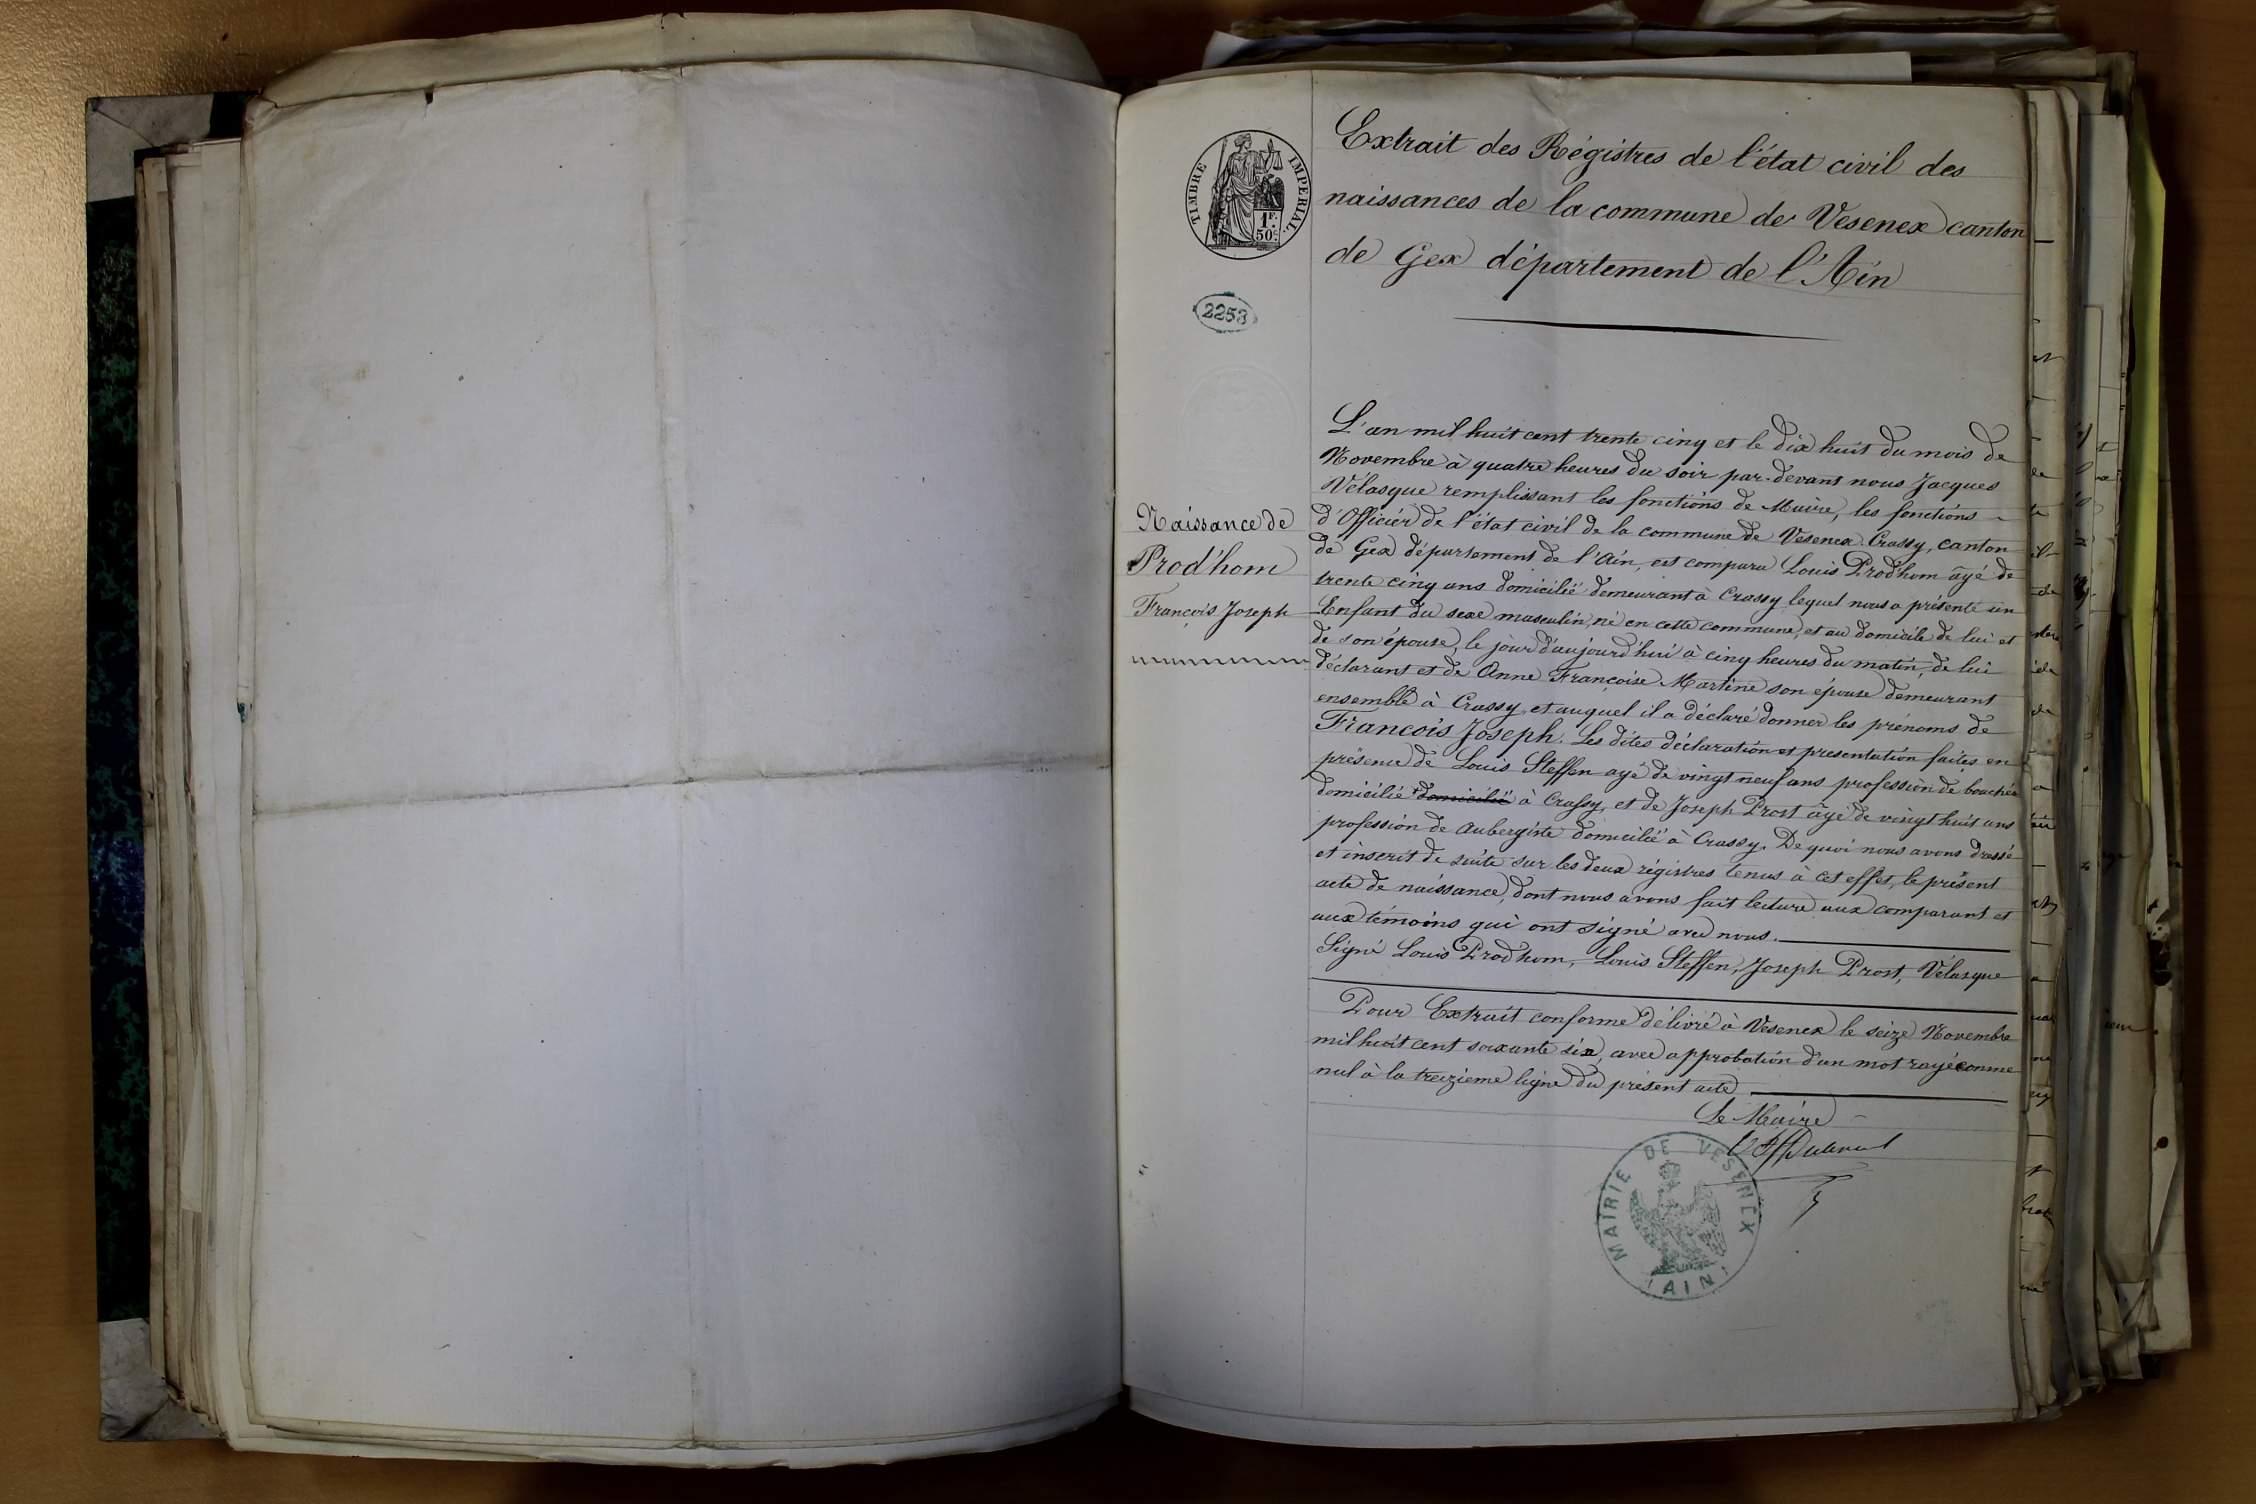 TIMBRE IMPERIAL.
1F.
50c
2253
Extrait des Régistres de l'état civil des
naissances de la commune de Vesenex canton
de Gex département de l'Ain
Naissance de
Prod'hom
François Joseph
L'an mil huit cent trente cinq et le dix huit du mois de
Novembre à quatre heures du soir par-devant nous Jacques
Vélasque remplissant les fonctions de Maire, les fonctions
d'Officiér de l'état civil de la commune de Vesenex-Crassy, canton
de Gex département de l'Ain, est comparu Louis Prod'hom âgé de
trente cinq ans domicilié demeurant à Crassy lequel nous a présenté un
Enfant du sexe masculin, né en cette commune, et au domicile de lui et
de son épouse, le jour d'aujourd'hui à cinq heures du matin, de lui
déclarant et de Anne Françoise Martine son épouse demeurant
ensemble à Crassy et auquel il a déclaré donner les prénoms de
François Joseph. Les dites déclaration et presentation faites en
présence de Louis Steffen agé de vingt neuf ans profession de boucher
domicilié domicilié à Crassy, et de Joseph Prost âgé de vingt huit ans
profession de aubergiste domicilié à Crassy. De quoi nous avons dressé
et inscrit de suite sur les deux régistres tenus à cet effet, le présent
acte de naissance, dont nous avons fait lecture aux comparant et
aux témoins qui ont signé avec nous.
Signé Louis Prod'hom, Louis Steffen, Joseph Prost, Vélasque
Pour Extrait conforme délivré à Vesenex le seize Novembre
mil huit cent soixante six, avec approbation d'un mot rayé comme
nul à la treizieme ligne du présent acte
Le Maire
MAIRIE DE VESENEX
(AIN)